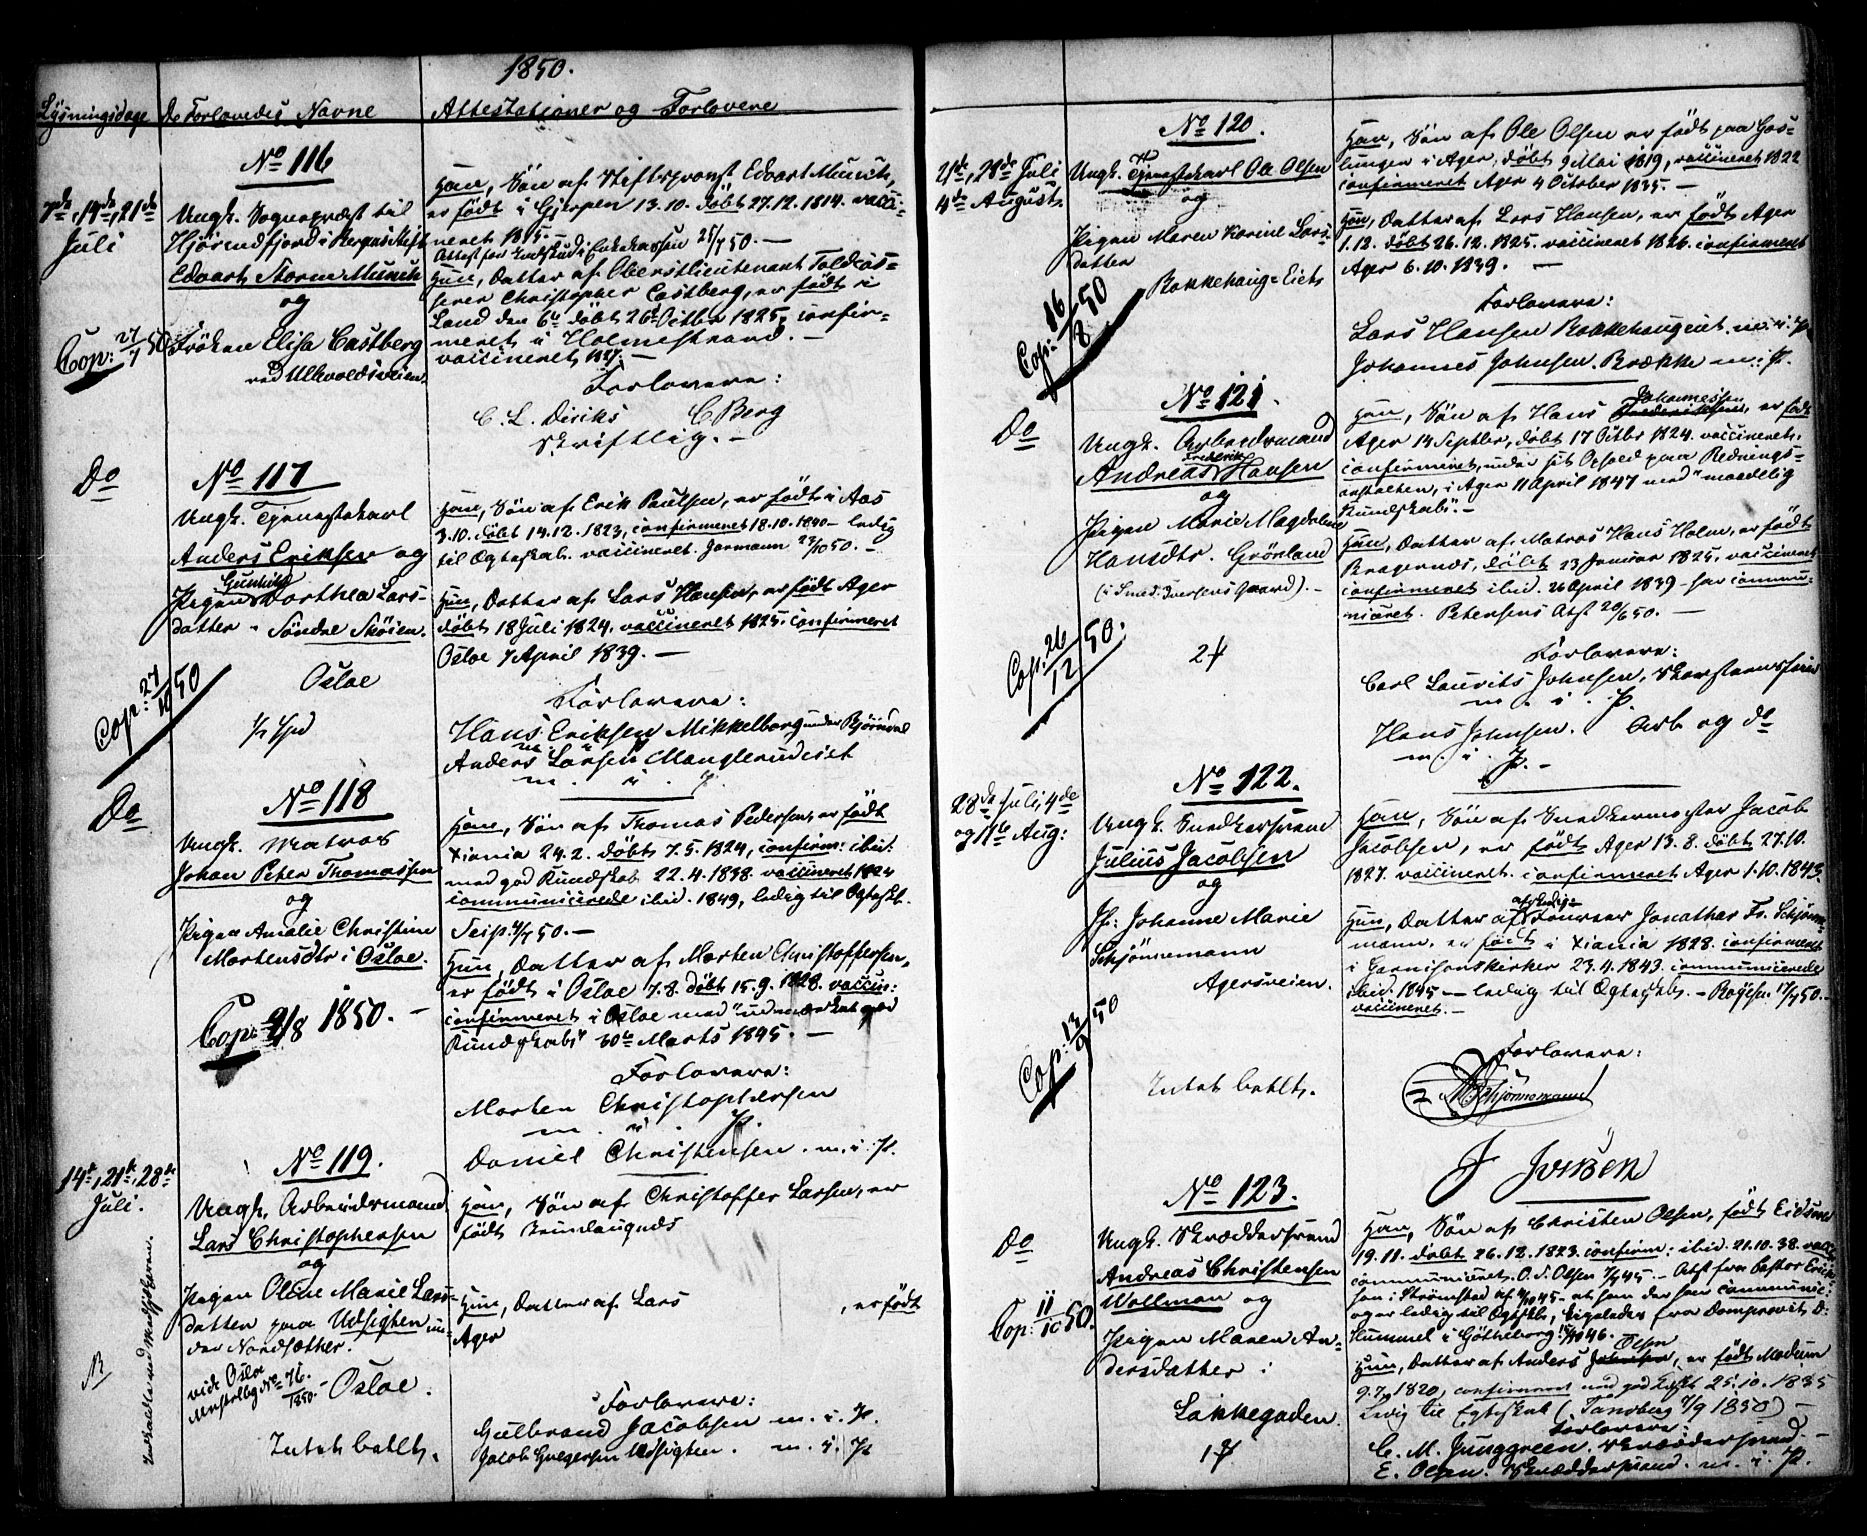 1850.
Lysningsdage De Forlovedes Navne Attestationer og Forlovere
No 116
7de, 14de, 21de
Juli
Ungk. Sognepræst til
Hjörendfjord i Bergens Stift
Edvart Storm Munch
og
Fröken Elisa Castberg
ved Ullevoldsveien.
Cop: 27/7 50
Han, Sön af Stiftsprovst Edvart Munch,
er født i Gjerpen 13.10. döbt 27.12.1814. vacci-
neret 1815.
Attest for Indskud i Enkekassen 25/7 50. —
Hun, Datter af Oberstlieutenant Toldcas-
serer Christopher Castberg, er født i
Land den 6te döbt 26 Octbr 1825, confir-
meret i Holmestrand. —
vaccineret 1827. —
Forlovere:
C. L. Diriks C Berg
Skriftlig. —
Do
No 117
Ungk. Tjenestekarl
Anders Eriksen og
Pigen Gunhild Dorthea Lars-
datter - Söndre Skøien.
Osloe
1/2 Spd
Cop: 27/10 50
Han, Sön af Erik Paulsen, er født i Aas
3.10. döbt 14.12.1823, confirmeret 18.10.1840 - ledig
til Egteskab. vaccineret. Jormann 27/10 50. —
Hun, Datter af Lars Hansen, er født Ager
döbt 18 Juli 1824, vaccineret 1825. confirmeret
Osloe 7 April 1839. —
Forlovere:
Hans Eriksen Mikkelborg under Bjørndal
m. i. P.
Anders Larsen Manglerudeiet
m. i. P.
Do
No 118
Ungk. Matros
Johan Peter Thomassen
og
Pigen Amalie Christine
Mortensdtr i Osloe.
Cop: 9/8 1850. —
Han, Sön af Thomas Pedersen, er født
Xiania 24.2. döbt 7.5.1824, confirm: ibid:
med god Kundskab 22.4.1838. vaccineret 1824
communicerede ibid. 1849, ledig til Egtesk.
Hun, Datter af Morten Christoffersen,
er født i Osloe 7.8. döbt 15.9.1828. vaccin:
confirmeret i Osloe med "udmærket god
Kundskab" 30te Marts 1845. —
Forlovere:
Morten Christophersen
m. i. P.
Daniel Christensen. m. i. P.
No 119.
14de, 21de, 28de
Juli.
Ungk. Arbeidsmand
Lars Christophersen
og
Pigen Oline Marie Lars-
datter paa Udsigten un-
der Nordsæther.
vide Osloe
No 76.
1850. - Osloe.
Intet betalt.
Han, Sön af Christoffer Larsen, er
født
Hun, Datter af Lars , er født
Ager
Forlovere:
Gulbrand Jacobsen m. i. P.
Jacob Gregersen Udsigten. m. i. P.
No 120.
21de, 28de Juli
4de August.
Ungk. Tjenestekarl Ole Olsen
og
Pigen Maren Karine Lars-
datter
Bakkehaug-Eiet
Cop: 16/8 50
Han, Sön af Ole Olsen er født paa Gos-
lungen i Ager, döbt 9 Mai 1819, vaccineret 1822
confirmeret Ager 4 October 1835. —
Hun, Datter af Lars Hansen, er født Ager
1.12. döbt 26.12.1825. vaccineret 1826. confirmeret
Ager 6.10.1839. —
Forlovere:
Lars Hansen Bakkehaugeiet m. i. P.
Johannes Johnsen Brække m. i. P.
Do
No 121.
Ungk. Arbeidsmand
Andreas Frederik Hansen
og
Pigen Marie Magdalene
Hansdtr. Grönland
(i Smed. Iversens Gaard). —
Cop: 26/12 50.
Han, Sön af Hans Johannessen, er født
Ager 14 Septbr, döbt 17 Octbr 1824. vaccineret,
confirmeret, under sit Ophold paa Rednings-
anstalten, i Ager 11 April 1847 med "maadelig
Kundskab". —
Hun, Datter af Matros Hans Holm, er født
Bragernæs, döbt 23 Januar 1825, vaccineret
confirmeret ibid. 26 April 1839 - har commu-
niceret. Petersens Atst 20/6 50. —
Forlovere:
Carl Laurits Johnsen, Skorstensfeier
m. i. P.
Hans Johnsen. Arb og do
m. i. P. —
28de Juli, 4de
og 11te Aug:
No 122.
Ungk. Snedkersvend
Julius Jacobsen
og
Jf: Johanne Marie
Schjönnemann
Agersveien.
Cop: 13/9 50
Intet betalt.
Han, Sön af Snedkermester Jacob
Jacobsen, er født Ager 13.8. döbt 27.10.
1827. vaccineret. confirmeret Ager 1.10.1843.
Hun, Datter af afskedig= Foureer Jonathas Fr. Schjönne-
mann, er født i Xiania 1828. confirmeret
i Garnisonskirken 23.4.1843. communicerede
ibid. 1845 - ledig til Egteskb. - 17/7 50. —
vaccineret. —
Forlovere:
Schjönnemann
J Iversen
Do
No 123.
Ungk. Skræddersvend
Andreas Christensen
Wollman og
Pigen Maren An-
dersdatter i
Lakkegaden.
Cop: 11/10 50.
Han, Sön af Christen Olsen, født Eidsvold
19.11. döbt 26.12.1823. confirm: ibid. 21.10.38. vacc:
communiceret. O. S. Olsen 7/9 45. - Atst fra Pastor Erik-
sen i Strömstad af 45 - at han der har communic:
og er ledig til Egteskb, ligeledes fra Domprovst D:
Hummel i Götheborg 46.
Hun, Datter af Anders Olsen, er født Modum
9.7.1820, confirmeret med god Kdsk 25.10.1835
Ledig til Egteskab (Tandberg 7/9 1850) —
Forlovere:
C. M. Junggreen. Skræddersvend. —
E. Olsen. Skræddersvend. m. i. P.